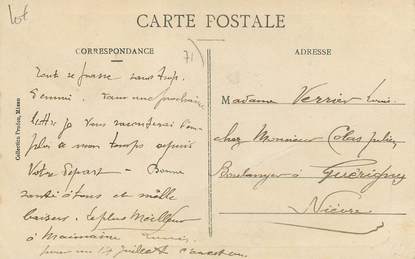 Lot
CARTE POSTALE
CORRESPONDANCE
71
ADRESSE
Tout se passe sans trop
d'ennui. Dans une prochaine
lettre je vous raconterai
de mon temps depuis
Votre départ - Bonne
santé à tous et mille
baisers. le plus Meilleur
à
14 juillet
Madame Verrier Louis
chez Monsieur Colas Julien
Boulanger à Guérigny
Nièvre
Collection Perdon, Mixon